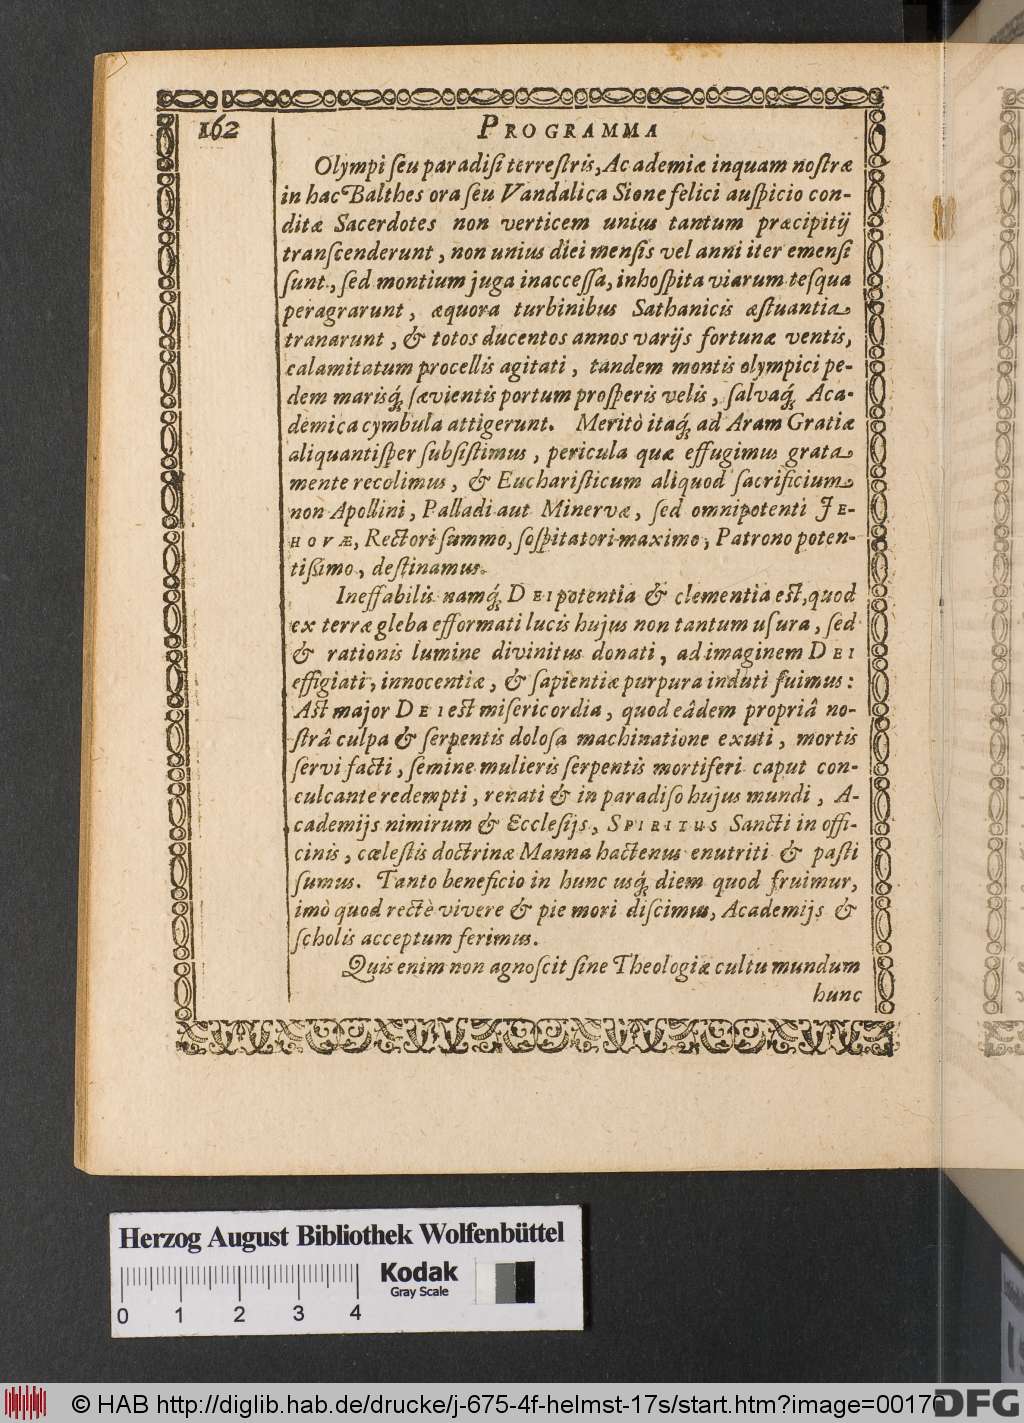 162
PROGRAMMA
Olympi ſeu paradiſi terreſtris, Academiæ inquam noſtræ
in hac Balthes ora ſeu Vandalica Sione felici auſpicio con-
ditæ Sacerdotes non verticem unius tantum præcipitij
tranſcenderunt, non unius diei menſis vel anni iter emenſi
ſunt, ſed montium juga inacceſſa, inhoſpita viarum teſqua
peragrarunt, æquora turbinibus Sathanicis æſtuantia
tranarunt, & totos ducentos annos varijs fortunæ ventis,
calamitatum procellis agitati, tandem montis olympici pe-
dem marisq́; ſævientis portum proſperis velis, ſalvaq́; Aca-
demica cymbula attigerunt. Meritò itaq́; ad Aram Gratiæ
aliquantiſper ſubſiſtimus, pericula quæ effugimus grata
mente recolimus, & Euchariſticum aliquod ſacrificium
non Apollini, Palladi aut Minervæ, ſed omnipotenti JE-
HOVÆ, Rectori ſummo, ſoſpitatori maximo, Patrono poten-
tiſſimo, deſtinamus.
Ineffabilis namq́; DEI potentia & clementia eſt, quod
ex terræ gleba efformati lucis hujus non tantum uſura, ſed
& rationis lumine divinitus donati, ad imaginem DEI
effigiati, innocentiæ, & ſapientiæ purpura induti fuimus:
Aſt major DEI eſt miſericordia, quod eâdem propriâ no-
ſtrâ culpa & ſerpentis doloſa machinatione exuti, mortis
ſervi facti, ſemine mulieris ſerpentis mortiferi caput con-
culcante redempti, renati & in paradiſo hujus mundi, A-
cademijs nimirum & Eccleſijs, SPIRITUS Sancti in offi-
cinis, cœleſtis doctrinæ Manna hactenus enutriti & paſti
ſumus. Tanto beneficio in hunc usq́; diem quod fruimur,
imò quod rectè vivere & pie mori diſcimus, Academijs &
ſcholis acceptum ferimus.
Quis enim non agnoſcit ſine Theologiæ cultu mundum
hunc
Herzog August Bibliothek Wolfenbüttel
Kodak
Gray Scale
0 1 2 3 4
© HAB http://diglib.hab.de/drucke/j-675-4f-helmst-17s/start.htm?image=00170
DFG